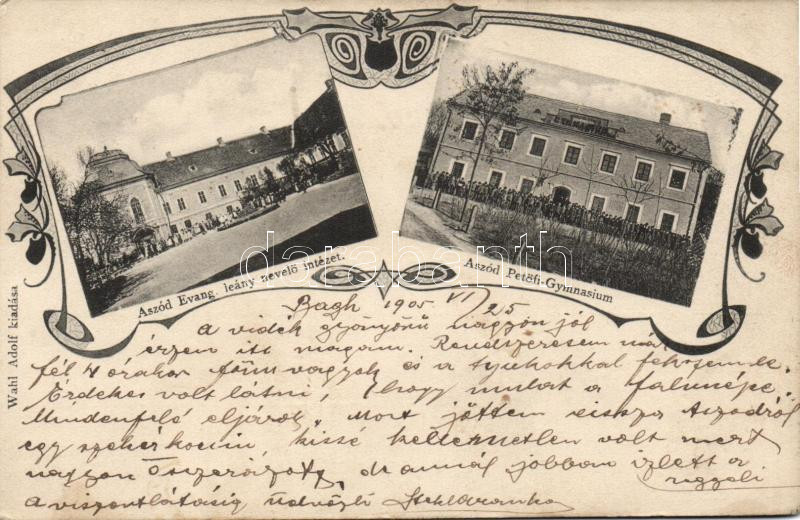 Aszód Evang. leány nevelő intézet.
Aszód Petőfi-Gymnasium
Wahl Adolf kiadása
darabanth.com
Bagh 1905 VI/25
A vidék gyönyörű nagyon jól
érzem itt magam. Rendszeresen már
fél 4 órakor fönn vagyok és a tyukokkal fekszem le.
Érdekes volt látni, hogy mulat a falu népe.
Mindenfelé eljárok, most jöttem vissza Aszódról
egy szekérkocsin kissé kellemetlen volt mert
nagyon összerázott, de annál jobban izlett a
reggeli
a viszontlátásig üdvözli